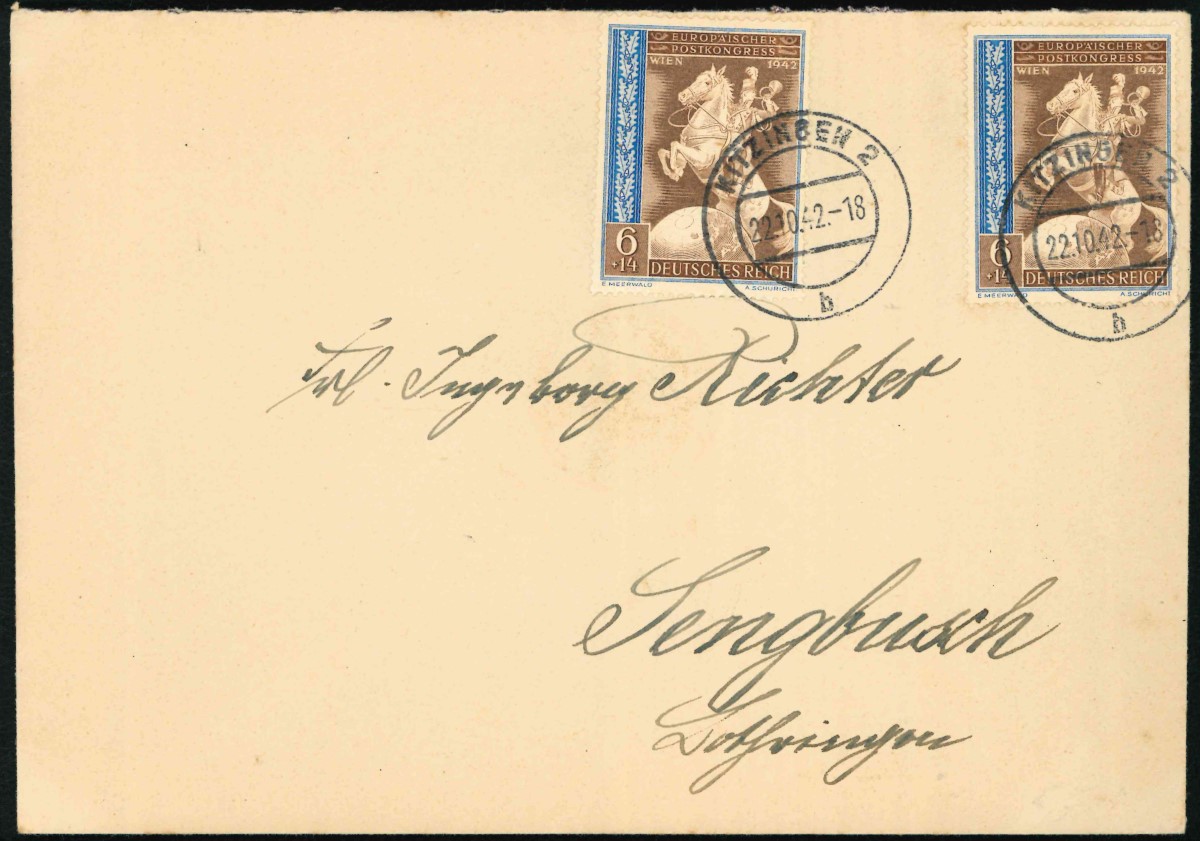 EUROPÄISCHER
POSTKONGRESS
WIEN 1942
6
+14
DEUTSCHES REICH
E. MEERWALD A. SCHURICHT
KITZINGEN 2
22.10.42.-18
b
EUROPÄISCHER
POSTKONGRESS
WIEN 1942
6
+14
DEUTSCHES REICH
E. MEERWALD A. SCHURICHT
KITZINGEN 2
22.10.42.-18
b
Frl. Ingeborg Richter
Sengbusch
Lothringen